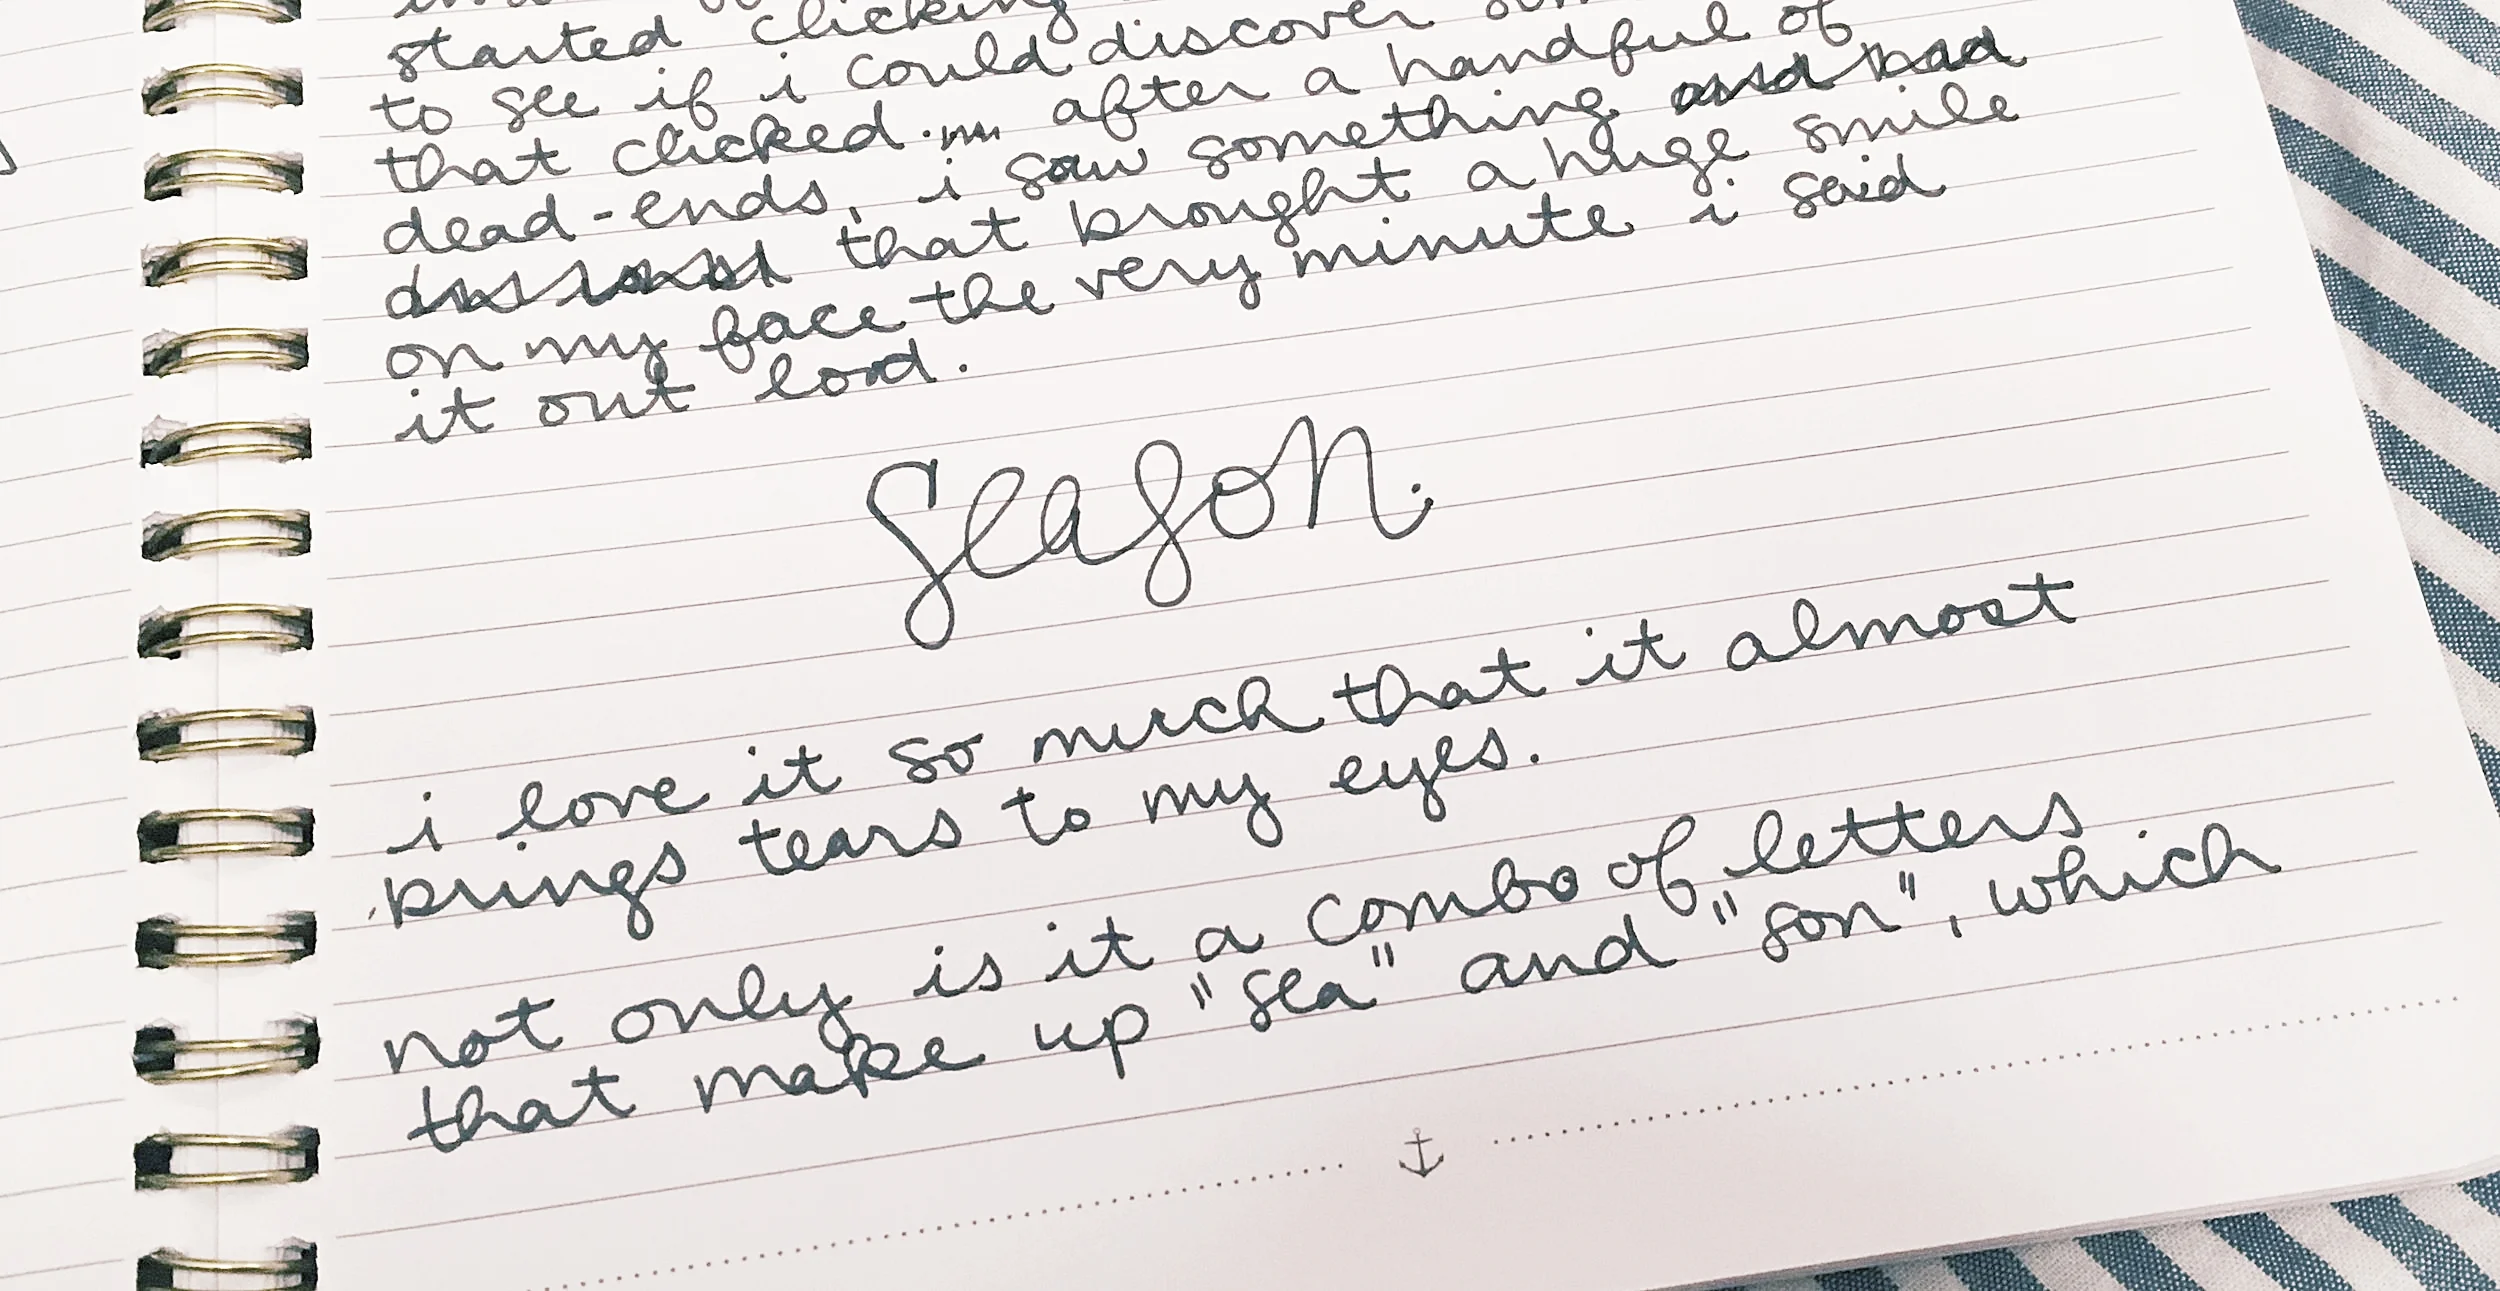 started clicking
to see if i could discover
that clicked... after a handful of
dead-ends, i saw something and had
that brought a huge smile
on my face the very minute i said
it out loud.
season.
i love it so much that it almost
brings tears to my eyes.
not only is it a combo of letters
that make up "sea" and "son", which